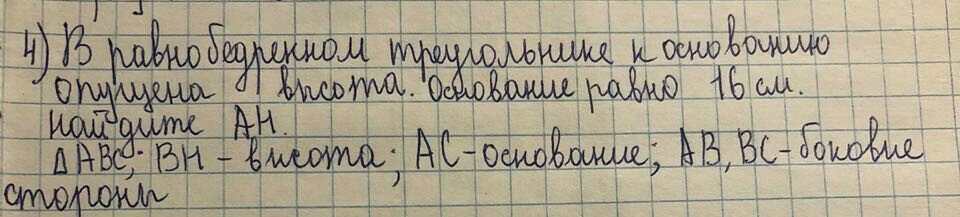 4) В равнобедренном треугольнике к основанию
опущена высота. Основание равно 16 см.
Найдите АН.
ΔАВС; ВН - высота; АС-основание; АВ, ВС-боковые
стороны